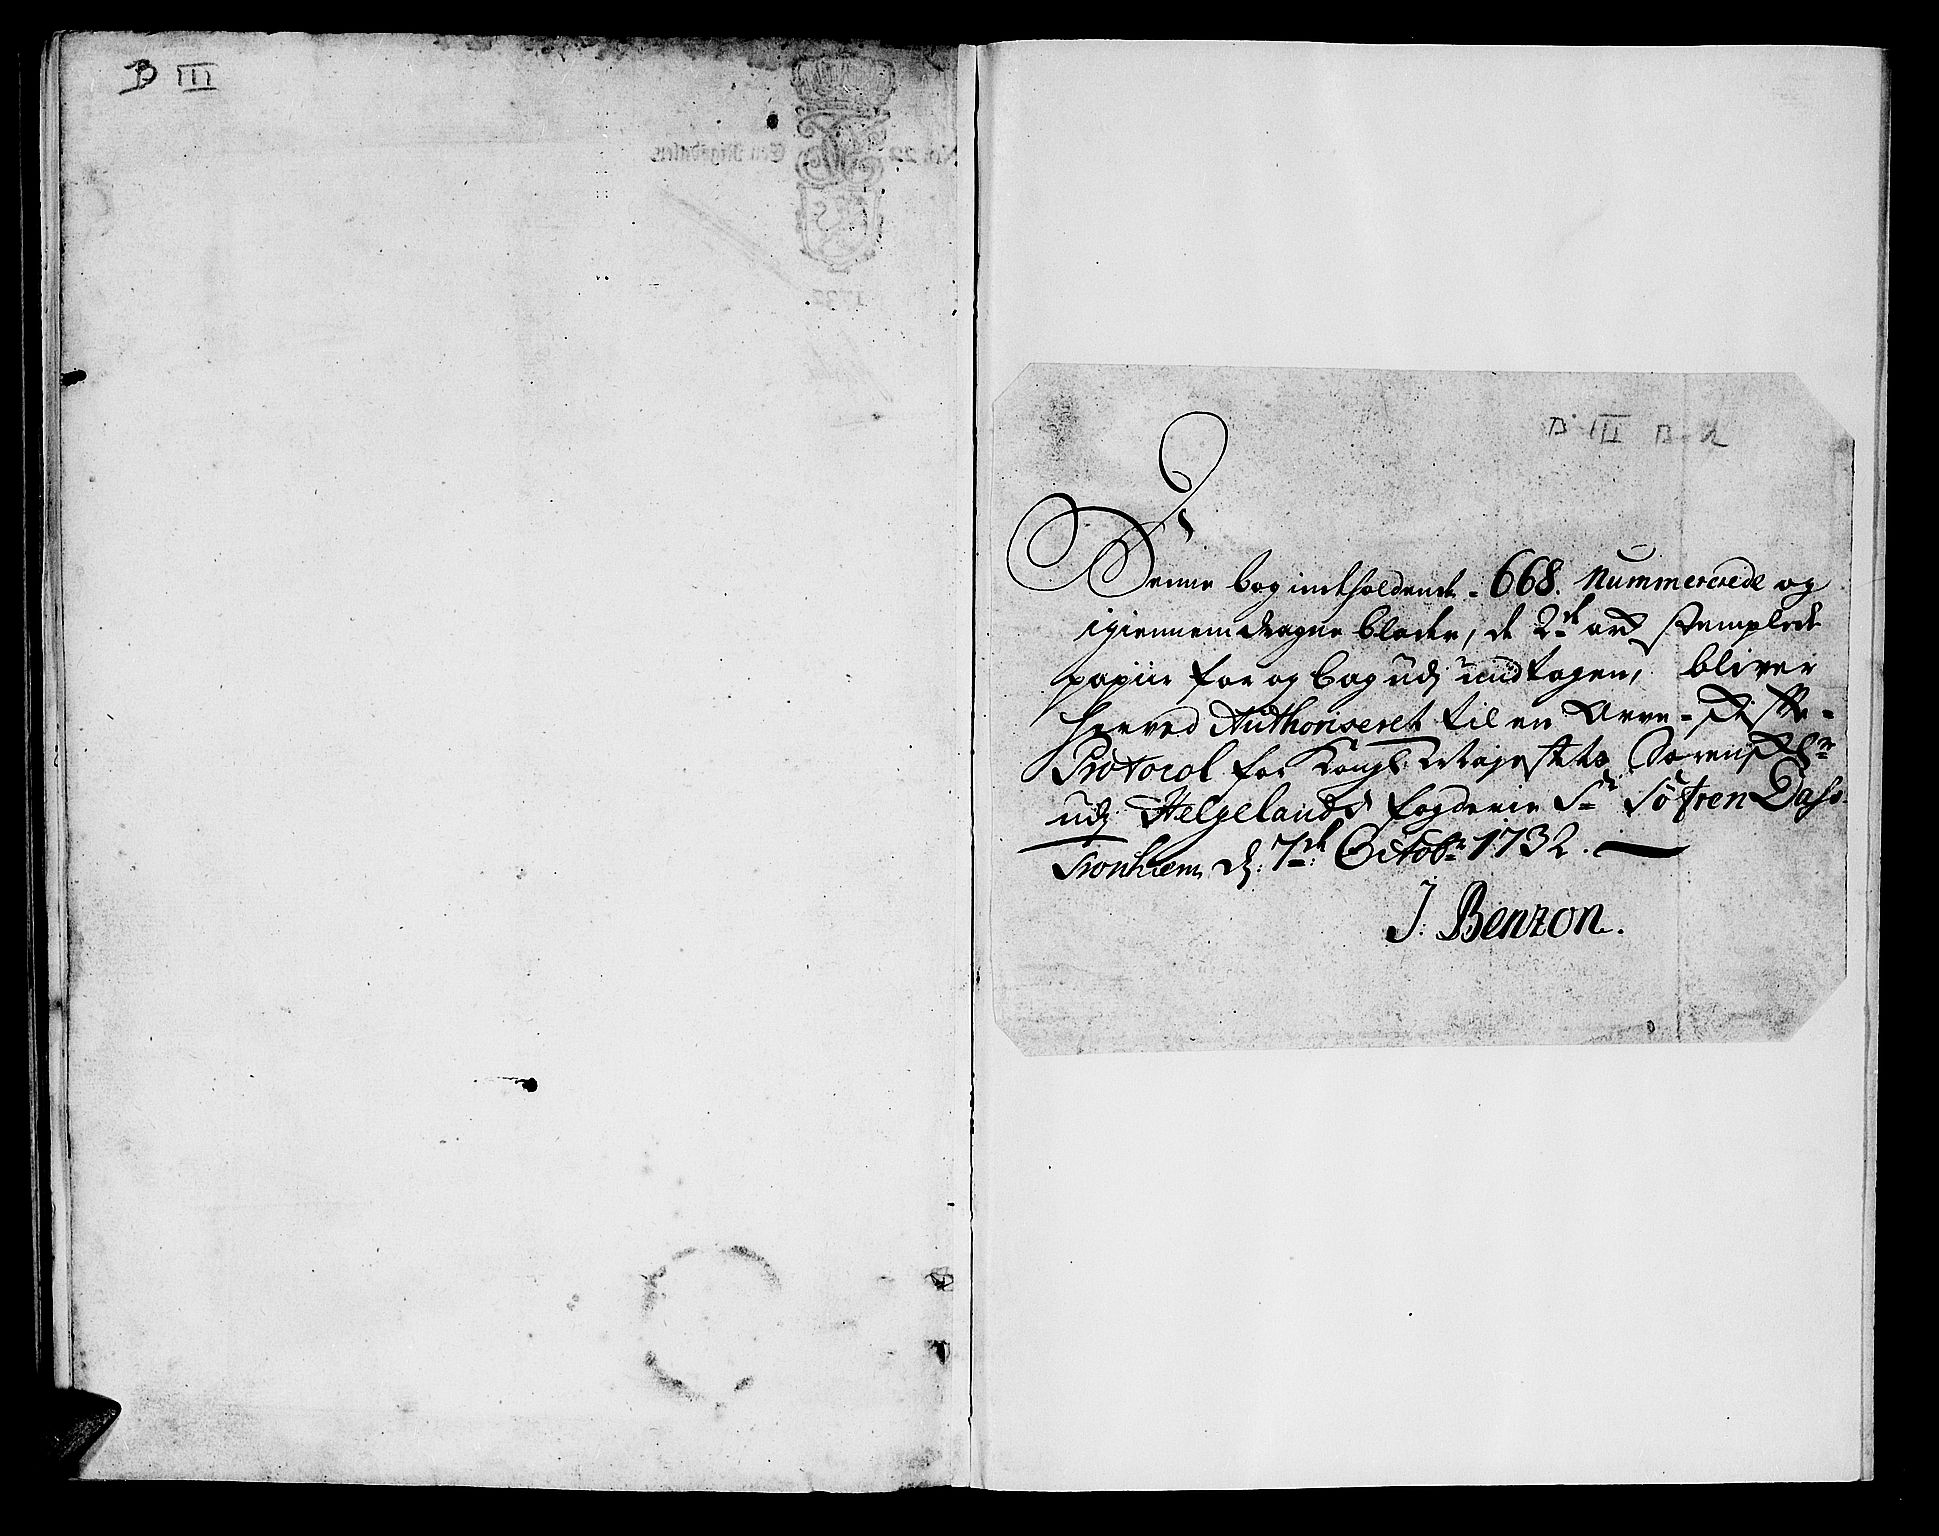 B III
No. 22 Een Rigsdaler
1732
B III B. 2
Denne bog indholdende 668. Nummererede og
igiennemdragne blader, de 2de ark stemplede
papiir for og bag udj indtagen, bliver
herved Authoriseret til en Arve-Skiffte-
Protocol for Kongl. Majestets Sorenskr:
udj Helgelands fogderie Sr Søfren Dass.
Tronhiem, d: 7de Octobr 1732.
J. Benzon.